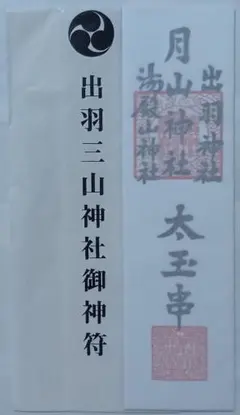 出羽三山神社御神符
出羽神社
月山神社
湯殿山神社
太玉串